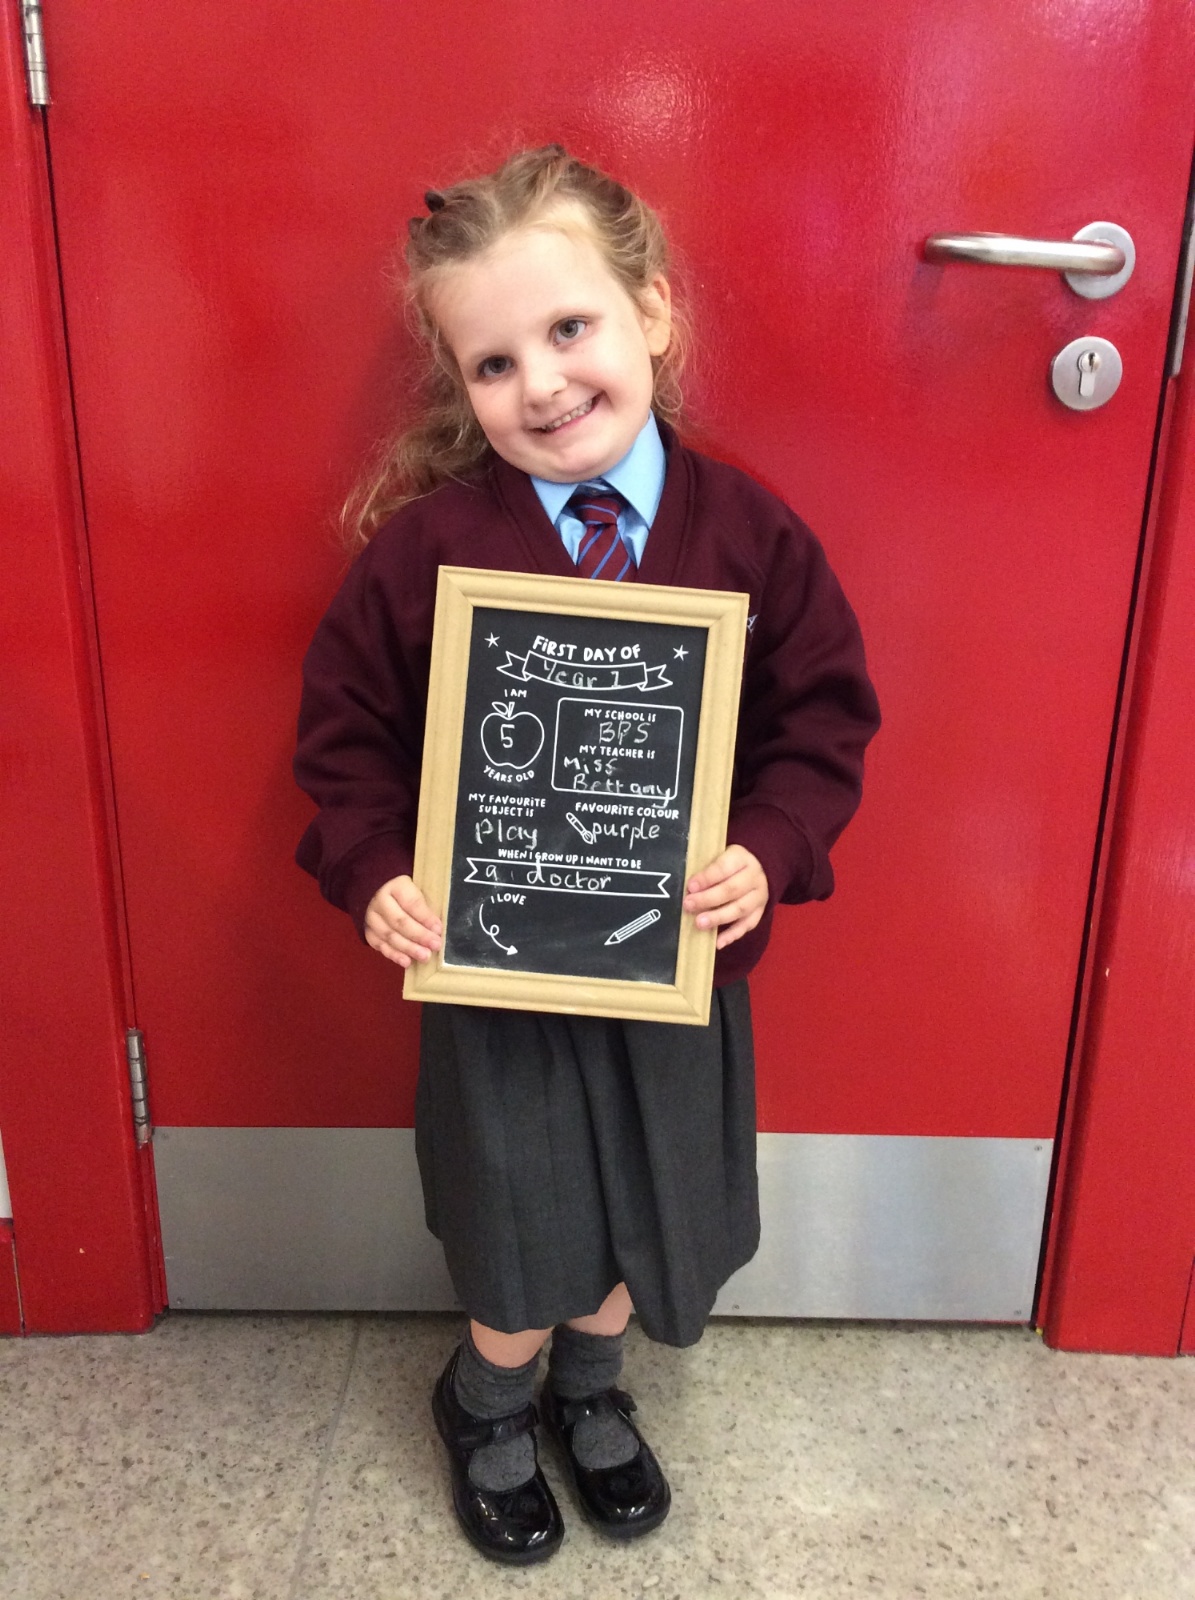 FIRST DAY OF
Year 1
I AM
5
YEARS OLD
MY SCHOOL IS
BPS
MY TEACHER IS
Miss
Bettany
MY FAVOURITE
SUBJECT IS
Play
FAVOURITE COLOUR
purple
WHEN I GROW UP I WANT TO BE
a doctor
I LOVE